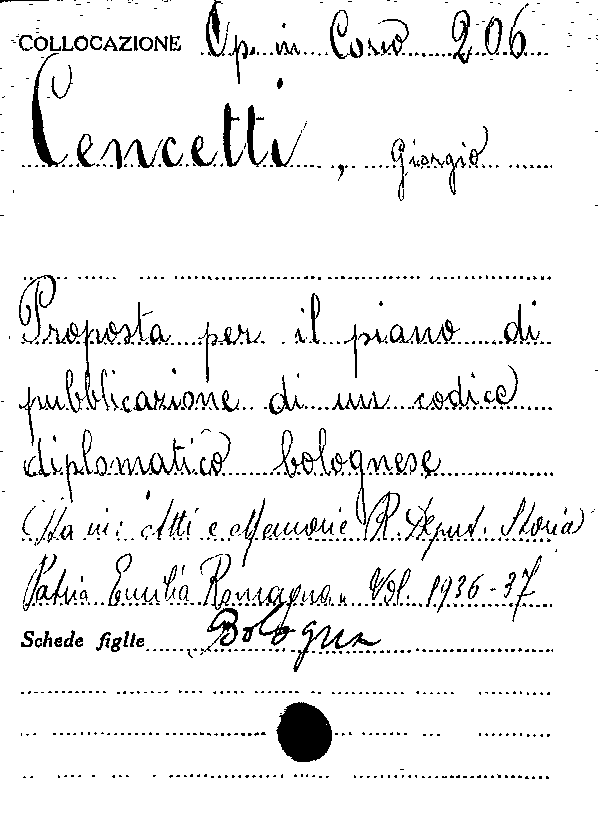 COLLOCAZIONE Op. in Corso 206
Cencetti, Giorgio
Proposta per il piano di
pubblicazione di un codice
diplomatico bolognese
(Sta in: Atti e Memorie R. Deput. Storia
Patria Emilia Romagna. Vol. 1936-37
Schede figlie Bologna